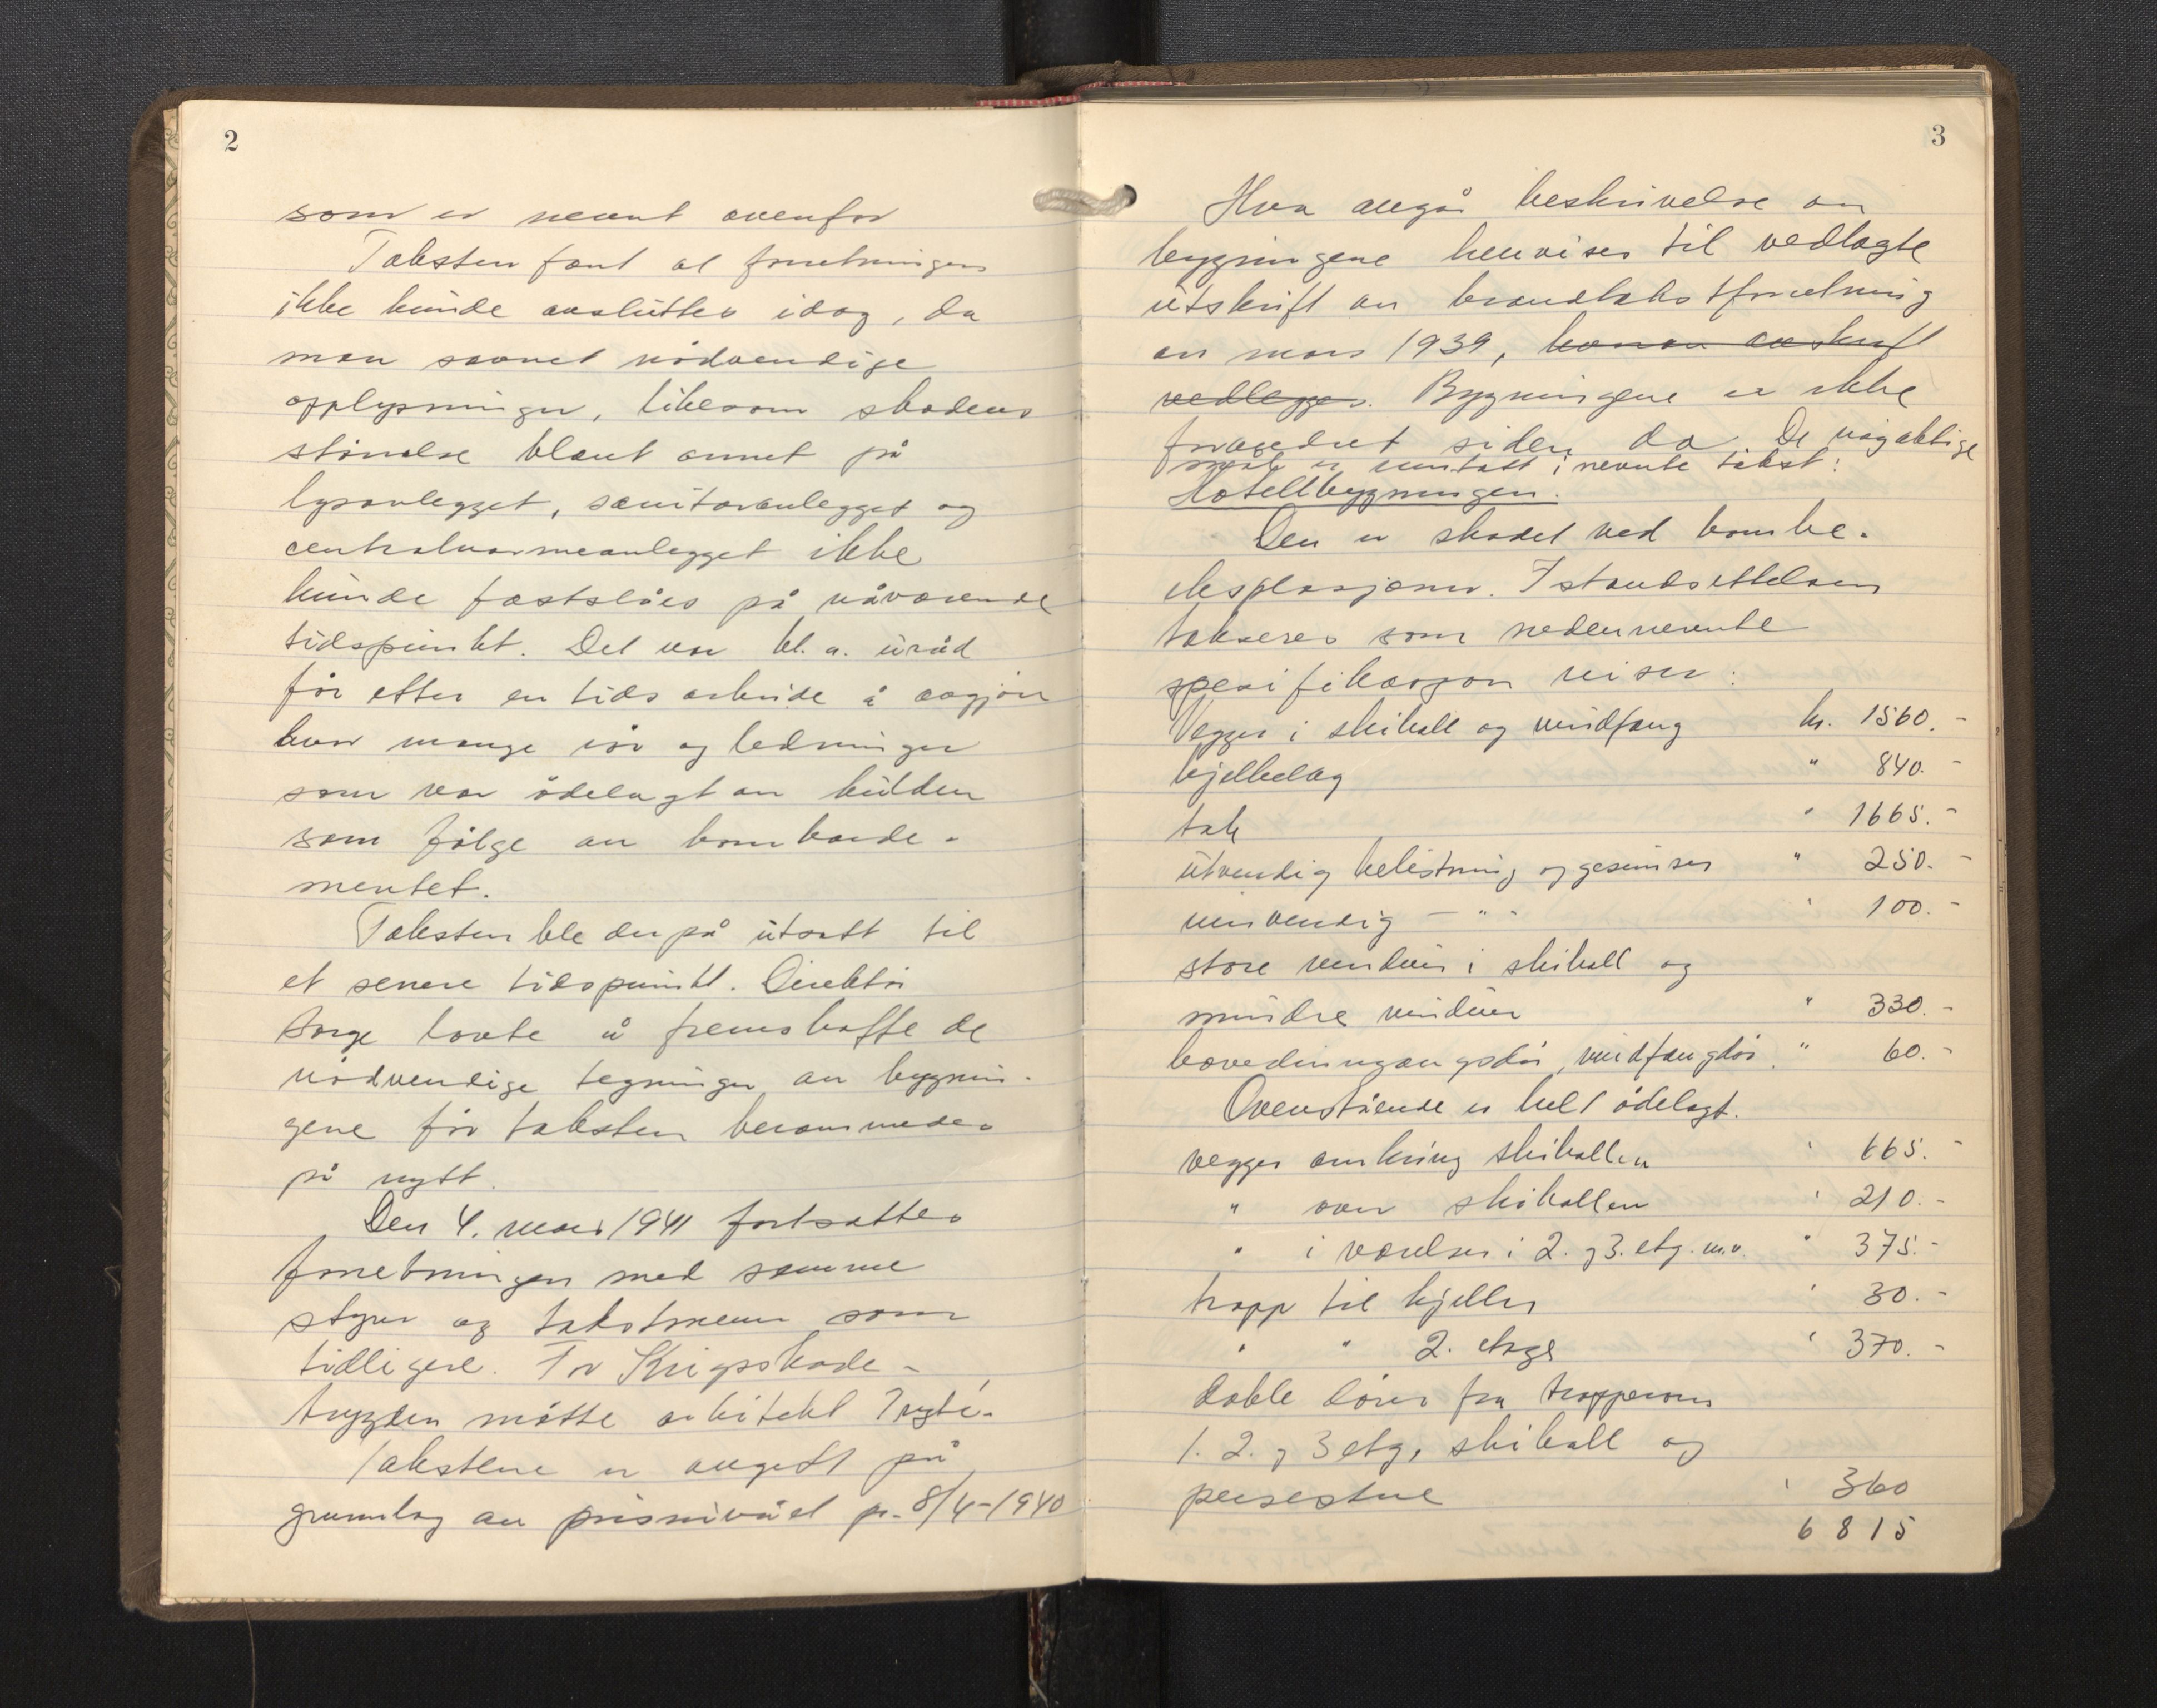 2
som er nevnt ovenfor
Taksten fant at forretningen
ikke kunde avsluttes idag, da
man savnet nødvendige
opplysninger, likesom skadens
størrelse blant annet på
lysanlegget, sanitæranlegget og
centralvarmeanlegget ikke
kunde fastslåes på nåværende
tidspunkt. Det var bl. a. uråd
før etter en tids arbeide å avgjøre
hvor mange rør og ledninger
som var ødelagt av kulden
som følge av bombarde-
mentet.
Taksten ble derpå utsatt til
et senere tidspunkt. Direktør
lovte å fremskaffe de
nødvendige tegninger av bygnin-
gene før taksten berammedes
på nytt.
Den 4. mars 1941 fortsattes
forretningen med samme
styrer og takstmenn som
tidligere. For Krigsskade-
trygden møtte arkitekt
Takstene er avgitt på
grunnlag av prisnivået pr. 8/4-1940
3
Hva angår beskrivelse av
bygningene henvises til vedlagte
utskrift av brandtakstforretning
av mars 1939, hvorav avskrift
vedlegges. Bygningene er ikke
forandret siden da. De nøyaktige
mål er inntatt i nevnte takst:
Hotellbygningen.
Den er skadet ved bombe-
eksplosjoner. Istandsettelsen
takseres som nedennevnte
spesifikasjon viser:
Vegger i skihall og vindfang kr. 1560.-
bjelkelag " 840.-
tak " 1665.-
utvendig belistning og gesimser " 250.-
innvendig - " - " 100.-
store vinduer i skihall og
mindre vinduer " 330.-
hovedinngangsdør, vindfangdør. " 60.-
Ovenstående er helt ødelagt.
vegger omkring skihallen " 665.-
" over skihallen " 210.-
" i værelser i 2. og 3. etg. m.v. " 375.-
trapp til kjeller " 30.-
" " 2. etage " 370.-
doble dører fra trapperom
1. 2. og 3 etg, skihall og
peisestue " 360
6815